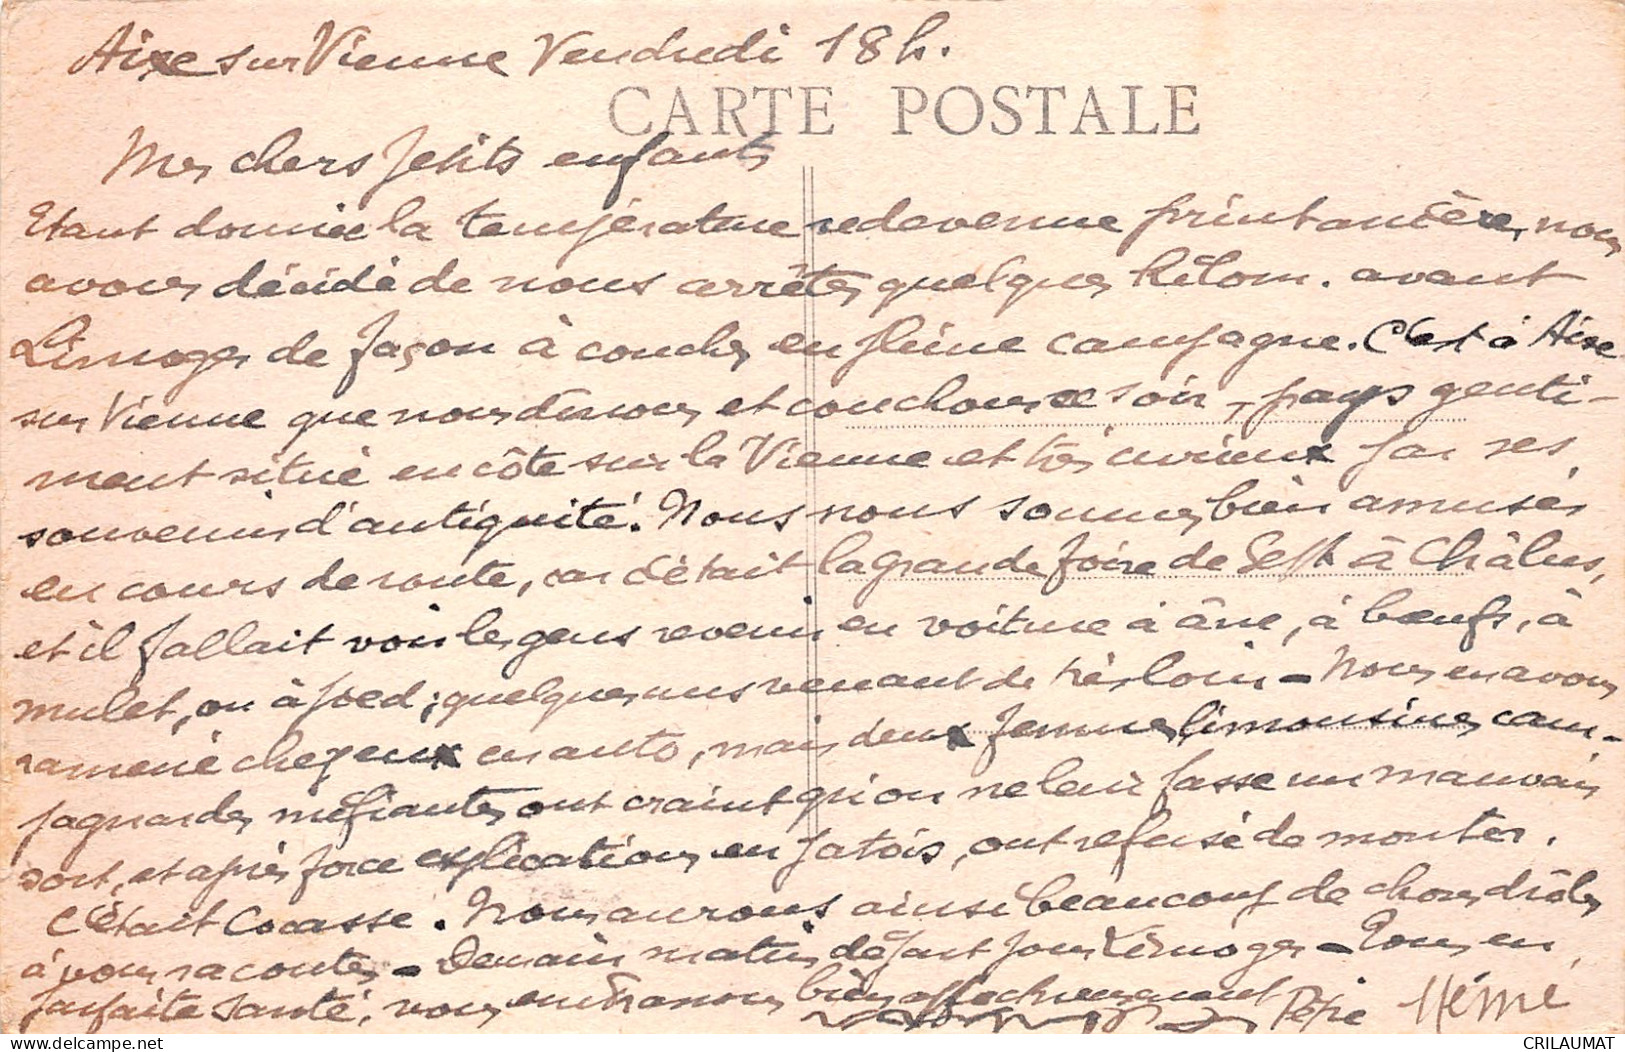 Aixe sur Vienne Vendredi 18 h.
CARTE POSTALE
Mes chers petits enfants
Etant donnée la température redevenue printanière, nous
avons décidé de nous arrêter quelques kilom. avant
Limoges de façon à coucher en pleine campagne. C'est à Aixe
sur Vienne que nous dinons et couchons ce soir, pays genti-
ment situé en côte sur la Vienne et très curieux par ses
souvenirs d'antiquité. Nous nous sommes bien amusés
en cours de route, car c'était la grande foire de Sept à Châlus,
et il fallait voir les gens revenir en voiture à âne, à bœufs, à
mulet, ou à pied ; quelques uns venant de très loin - Nous en avons
ramené chez eux en auto, mais deux femmes limousines cam-
pagnardes méfiantes ont craint qu'on ne leur fasse un mauvais
sort, et après force explications en patois, ont refusé de monter.
C'était Cocasse. Nous aurons ainsi beaucoup de choses drôles
à vous raconter - Demain matin départ pour Limoges - Tous en
parfaite santé, vous embrassons bien affectueusement Pépé Mémé
CRILAUMAT